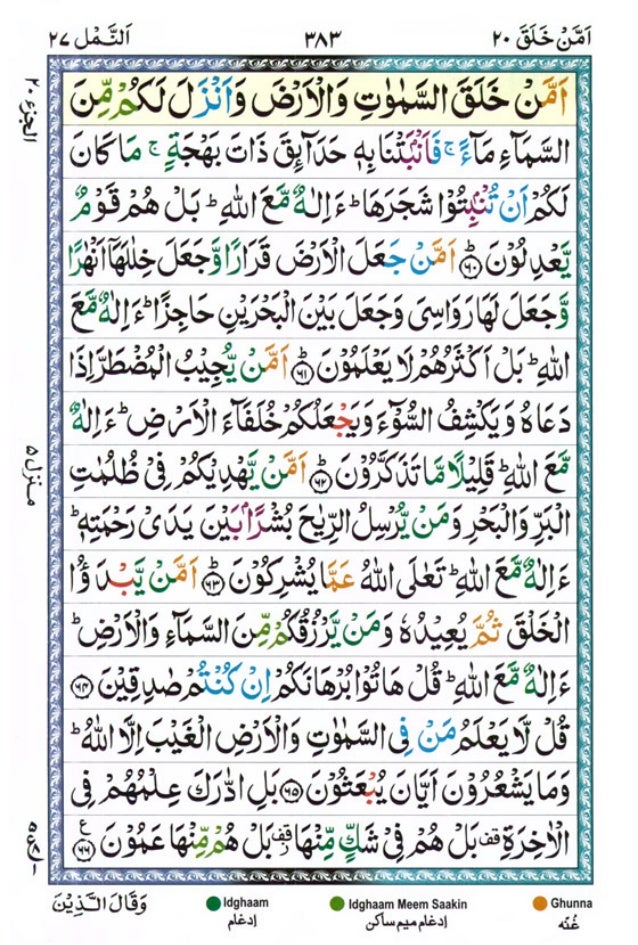 اَمَّنْ خَلَقَ ۲۰
۳۸۳
اَلنَّمْل ۲۷
اَمَّنْ خَلَقَ السَّمٰوٰتِ وَالْاَرْضَ وَاَنْزَلَ لَكُمْ مِّنَ
السَّمَآءِ مَآءً ۚ فَاَنْۢبَتْنَا بِهٖ حَدَآئِقَ ذَاتَ بَهْجَةٍ ۚ مَا كَانَ
لَكُمْ اَنْ تُنْۢبِتُوْا شَجَرَهَا ؕ ءَاِلٰهٌ مَّعَ اللّٰهِ ؕ بَلْ هُمْ قَوْمٌ
يَّعْدِلُوْنَ ﴿۶۰﴾ اَمَّنْ جَعَلَ الْاَرْضَ قَرَارًا وَّجَعَلَ خِلٰلَهَاۤ اَنْهٰرًا
وَّجَعَلَ لَهَا رَوَاسِيَ وَجَعَلَ بَيْنَ الْبَحْرَيْنِ حَاجِزًا ؕ ءَاِلٰهٌ مَّعَ
اللّٰهِ ؕ بَلْ اَكْثَرُهُمْ لَا يَعْلَمُوْنَ ﴿۶۱﴾ اَمَّنْ يُّجِيْبُ الْمُضْطَرَّ اِذَا
دَعَاهُ وَيَكْشِفُ السُّوْٓءَ وَيَجْعَلُكُمْ خُلَفَآءَ الْاَرْضِ ؕ ءَاِلٰهٌ
مَّعَ اللّٰهِ ؕ قَلِيْلًا مَّا تَذَكَّرُوْنَ ﴿۶۲﴾ اَمَّنْ يَّهْدِيْكُمْ فِيْ ظُلُمٰتِ
الْبَرِّ وَالْبَحْرِ وَمَنْ يُّرْسِلُ الرِّيٰحَ بُشْرًۢا بَيْنَ يَدَيْ رَحْمَتِهٖ ؕ
ءَاِلٰهٌ مَّعَ اللّٰهِ ؕ تَعٰلَى اللّٰهُ عَمَّا يُشْرِكُوْنَ ﴿۶۳﴾ اَمَّنْ يَّبْدَؤُا
الْخَلْقَ ثُمَّ يُعِيْدُهٗ وَمَنْ يَّرْزُقُكُمْ مِّنَ السَّمَآءِ وَالْاَرْضِ ؕ
ءَاِلٰهٌ مَّعَ اللّٰهِ ؕ قُلْ هَاتُوْا بُرْهَانَكُمْ اِنْ كُنْتُمْ صٰدِقِيْنَ ﴿۶۴﴾
قُلْ لَّا يَعْلَمُ مَنْ فِي السَّمٰوٰتِ وَالْاَرْضِ الْغَيْبَ اِلَّا اللّٰهُ ؕ
وَمَا يَشْعُرُوْنَ اَيَّانَ يُبْعَثُوْنَ ﴿۶۵﴾ بَلِ ادّٰرَكَ عِلْمُهُمْ فِي
الْاٰخِرَةِ قف بَلْ هُمْ فِيْ شَكٍّ مِّنْهَا قف بَلْ هُمْ مِّنْهَا عَمُوْنَ ﴿۶۶﴾ ع
الجزء ۲۰
منزل ۵
وَقَالَ الَّذِيْنَ
Idghaam
اِدغام
Idghaam Meem Saakin
اِدغام ميم ساكن
Ghunna
غُنّه